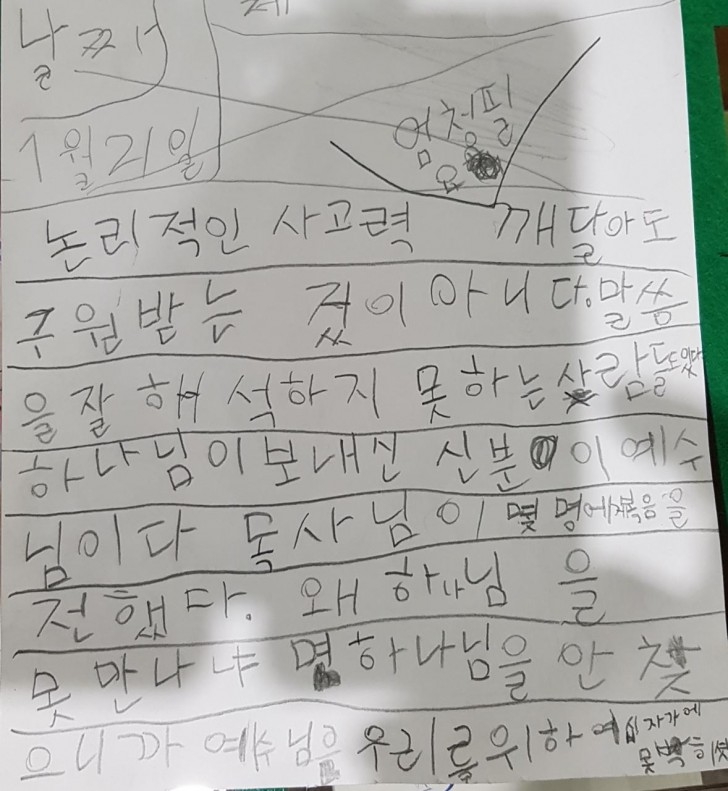 제
날짜
1월21일
엄청필
요
논리적인 사고력 깨달아도
구원받는 것이 아니다. 말씀
을 잘 해석하지 못하는 사람들도있다
하나님이보내신 신분이 예수
님이다 목사님이 몇 명에게복음을
전했다. 왜 하나님을
못 만나냐 면 하나님을 안 찾
으니까 예수님은 우리를위하여십자가에
못박히셧